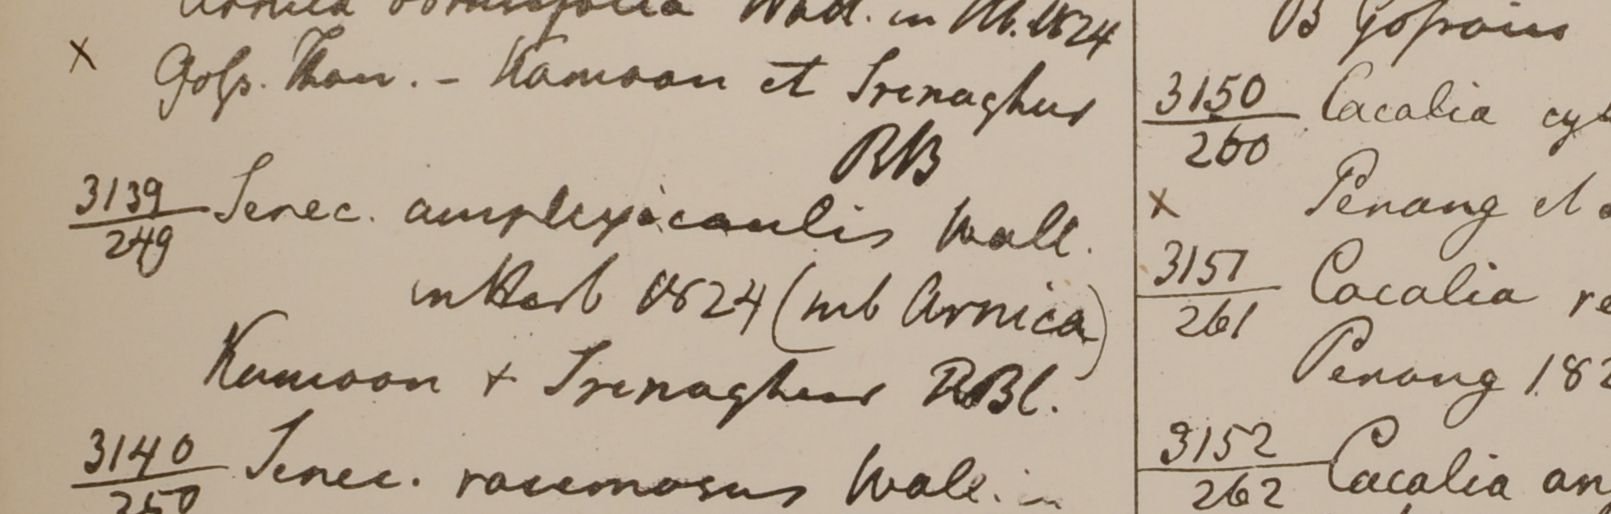 Arnica obtusifolia Wall. in Hb. 1824
× Gofs. Than. - Kamoon et Srenaghur
RB
3139
249
Senec. amplexicaulis Wall.
in Herb 1824 (sub Arnica)
Kumoon + Srenaghur RBl.
3140
250
Senec. racemosus Wall. in
B Gofsains
3150
260
Cacalia cyl
× Penang et
3151
261
Cacalia re
Penang 182
3152
262
Cacalia an